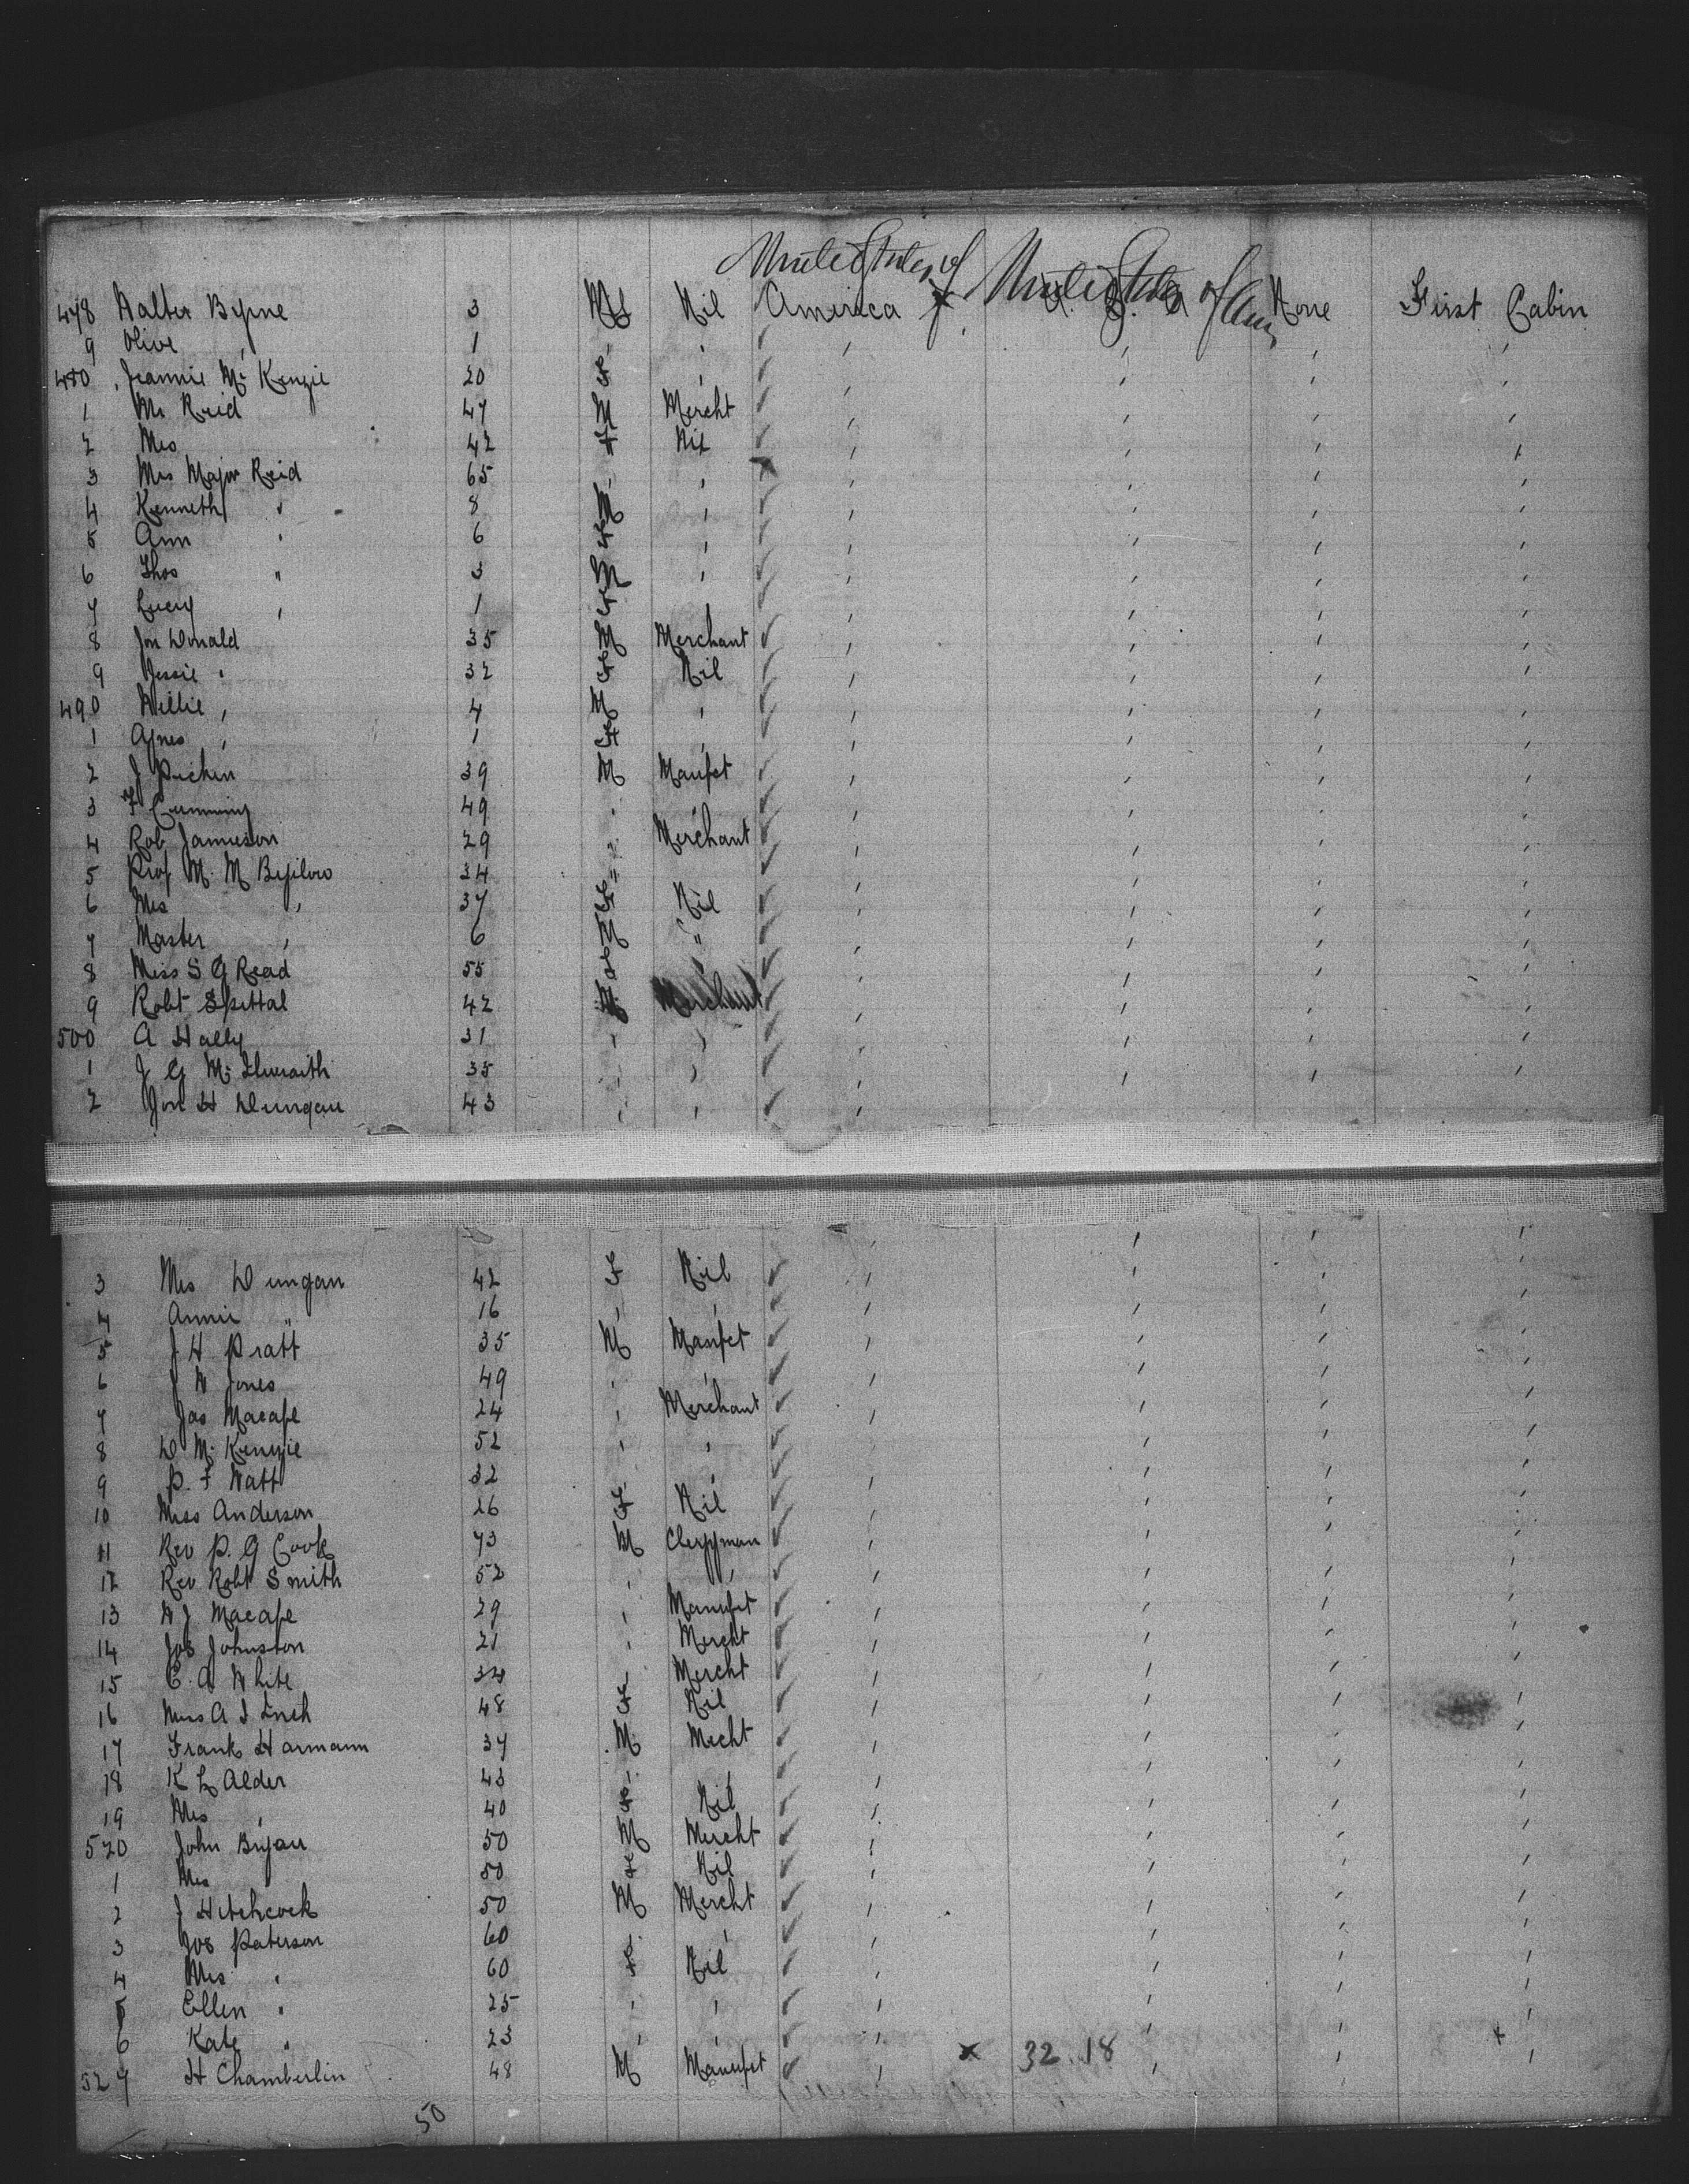 United States of United States of Am
478 Walter Byrne 3 M Nil America U. S. A None First Cabin
9 Olive " 1 " " " " " "
480 Jeannie Mc Kenzie 20 F " " " " "
1 Mr Reid 47 M Mercht " " " "
2 Mrs 42 F Nil " " " "
3 Mrs Major Reid 65 " " " " " "
4 Kenneth " 8 M " " " " "
5 Ann " 6 F " " " " "
6 Thos " 3 M " " " " "
7 Lucy " 1 F " " " "
8 Jon Donald 35 M Merchant " " " "
9 Jessie " 32 F Nil " " " "
490 Willie " 4 M " " " " "
1 Agnes " 1 F " " " " "
2 J 39 M Manfct " " " "
3 F Cumming 49 " " " " " "
4 Rob Jamieson 29 " Merchant " " " "
5 Prof M. M 34 " " " " "
6 Mrs " 37 F Nil " " " "
7 Master " 6 M " " " " "
8 Miss S G Read 55 F " " " " "
9 Robt Spittal 42 M Merchant " " " "
500 A Hally 31 " " " " " "
1 J G Mc Ilwraith 35 " " " " " "
2 Jon H Dungan 43 " " "
3 Mrs Dungan 42 F Nil " " " "
4 Annie " 16 " " " " " "
5 J H Pratt 35 M Manfct " " " "
6 J W Jones 49 " " " " " "
7 Jas Macafe 24 " Merchant " " " "
8 D Mc Kenzie 52 " " " " " "
9 P. F Watt 32 " " " " "
10 Miss Anderson 26 F Nil " " " "
11 Rev P. G Cook 43 M Clergyman " " " "
12 Rev Robt Smith 52 " " " " " "
13 W J Macafe 29 " Manufct " " " "
14 Jos Johnston 21 " Mercht " " " "
15 C. A White 34 Mercht " " " "
16 Miss A I 48 F Nil " " " "
17 Frank Harmann 37 M Mercht " " " "
18 K L Alder 43 " " " " " "
19 Mrs " 40 F Nil " " " "
520 John Bryan 50 M Mercht " " " "
1 Mrs " 50 F Nil " " " "
2 J Hitchcock 50 M Mercht " " " "
3 Jos Paterson 60 " " " " " "
4 Mrs " 60 F Nil " " " "
5 Ellen " 25 " " " " " "
6 Kate " 23 " " " x 32.18 " " x
527 H Chamberlin 48 M Manufct " " " "
50